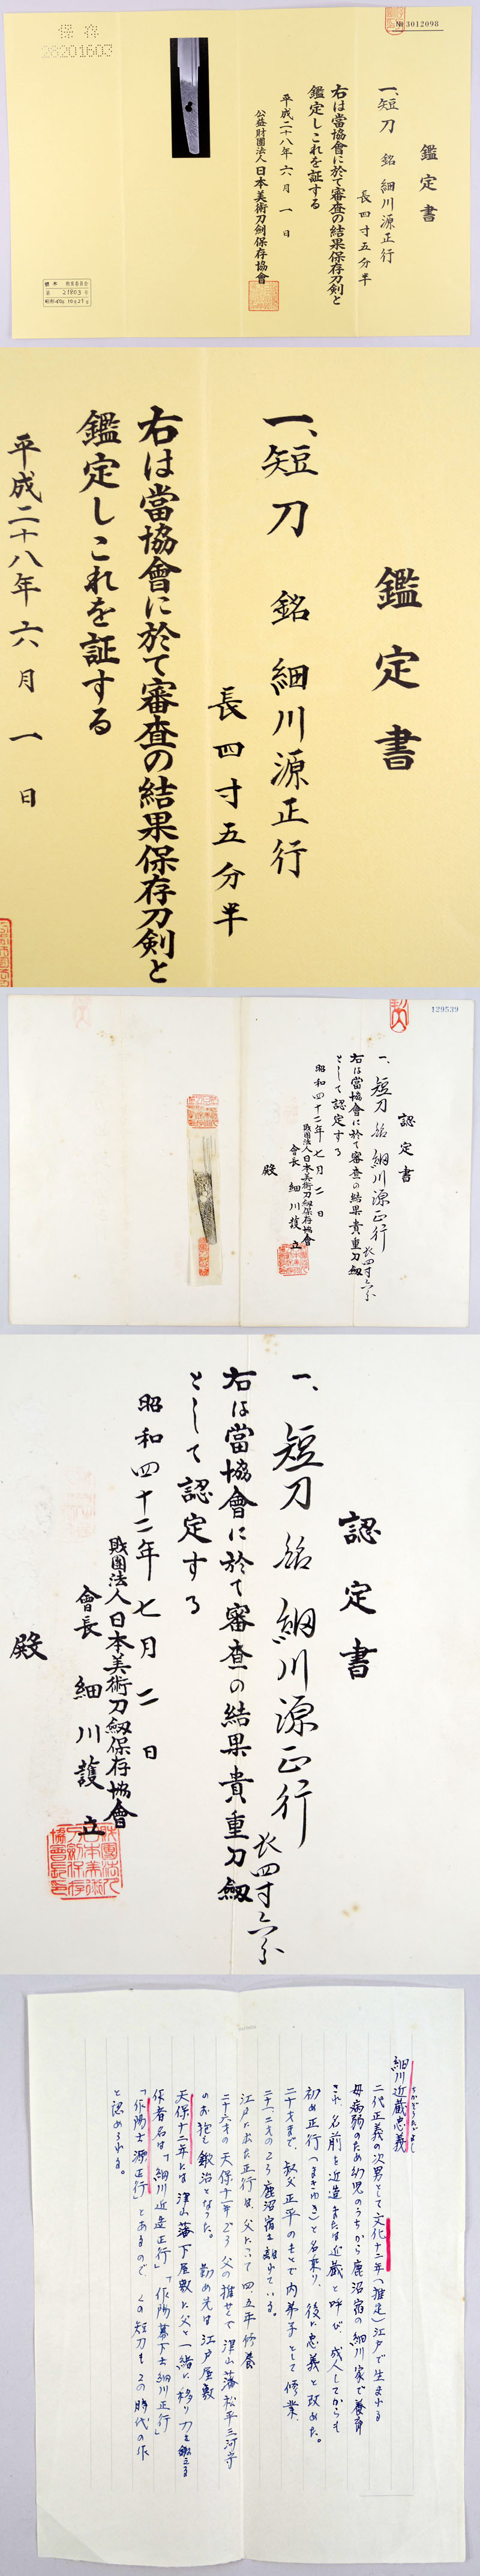 № 3012098
鑑定書
一、短刀 銘 細川源正行
長四寸五分半
右は當協會に於て審査の結果保存刀剣と
鑑定しこれを証する
平成二十八年六月一日
公益財團法人日本美術刀剣保存協會
保存
28201603
鑑定書
一、短刀 銘 細川源正行
長四寸五分半
右は當協會に於て審査の結果保存刀剣と
鑑定しこれを証する
平成二十八年六月一日
129539
認定書
一、短刀 銘 細川源正行 長四寸六分
右は當協會に於て審査の結果貴重刀劔
として認定する
昭和四十二年七月二日
財團法人日本美術刀劔保存協會
會長 細川護立
殿
認定書
一、短刀 銘 細川源正行 長四寸六分
右は當協會に於て審査の結果貴重刀劔
として認定する
昭和四十二年七月二日
財團法人日本美術刀劔保存協會
會長 細川護立
殿
細川近蔵忠義
二代正義の次男として文化十二年(推定)江戸で生まれる
母病弱のため幼児のうちから鹿沼宿の細川家で養育
され、名前を近造または近蔵と呼び、成人してからも
初め正行(まさゆき)と名乗り、後に忠義と改めた。
二十才まで、叔父正平のもとで内弟子として修業、
二十一、二才のころ鹿沼宿を離れている。
江戸に出た正行は、父について四、五年修養
二十六才の天保十一年ごろ父の推せんで津山藩松平三河守
のお抱え鍛冶となった。 勤め先は江戸屋敷
天保十二年には津山藩下屋敷に父と一緒に移り刀を鍛える
作者名は「細川近造正行」「作陽幕下士細川正行」
「作陽士源正行」とあるので、この短刀もこの時代の作
と認められる。